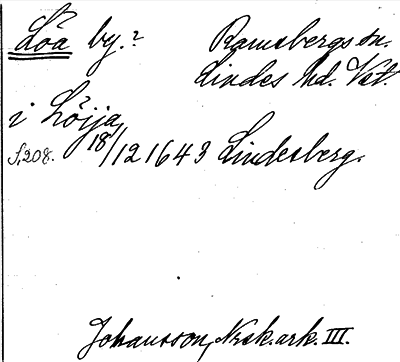 Löa by.? Ramsbergs sn.
Lindes hd. Vst.
i Löija
S.208. 18/12 1643 Lindesberg.
Johansson, Nrsk.ark. III.